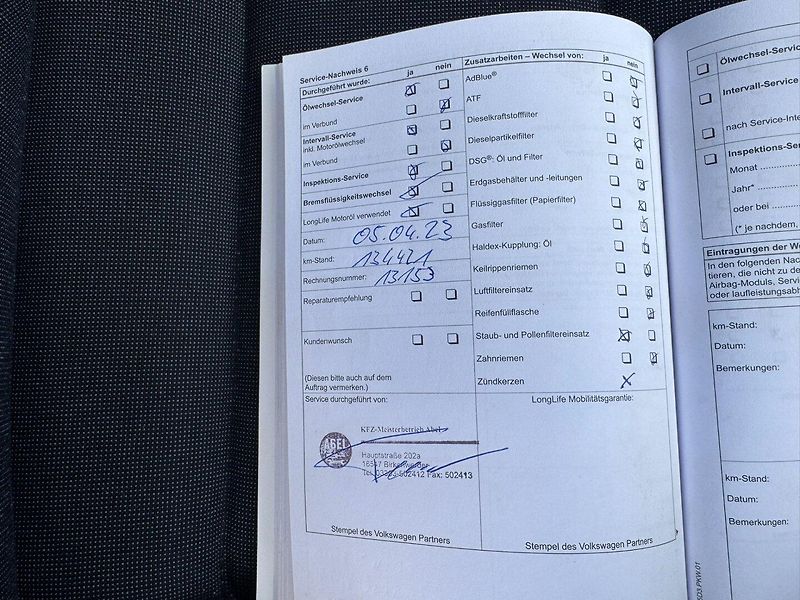 Service-Nachweis 6
Durchgeführt wurde: ja nein
Ölwechsel-Service
im Verbund
Intervall-Service
inkl. Motorölwechsel
im Verbund
Inspektions-Service
Bremsflüssigkeitswechsel
LongLife Motoröl verwendet
Datum: 05.04.23
km-Stand: 134421
Rechnungsnummer: 13153
Reparaturempfehlung
Kundenwunsch
(Diesen bitte auch auf dem
Auftrag vermerken.)
Service durchgeführt von:
ABEL
KFZ-Meisterbetrieb Abel
Hauptstraße 202a
16547 Birkenwerder
Tel. 03303-502412 Fax: 502413
Stempel des Volkswagen Partners
Zusatzarbeiten – Wechsel von: ja nein
AdBlue®
ATF
Dieselkraftstofffilter
Dieselpartikelfilter
DSG®: Öl und Filter
Erdgasbehälter und -leitungen
Flüssiggasfilter (Papierfilter)
Gasfilter
Haldex-Kupplung: Öl
Keilrippenriemen
Luftfiltereinsatz
Reifenfüllflasche
Staub- und Pollenfiltereinsatz
Zahnriemen
Zündkerzen
LongLife Mobilitätsgarantie:
Stempel des Volkswagen Partners
Ölwechsel-Service
Intervall-Service
nach Service-Inte
Inspektions-Ser
Monat
Jahr*
oder bei
(* je nachdem,
Eintragungen der We
In den folgenden Nac
tieren, die nicht zu de
Airbag-Moduls, Servic
oder laufleistungsabh
km-Stand:
Datum:
Bemerkungen:
km-Stand:
Datum:
Bemerkungen: